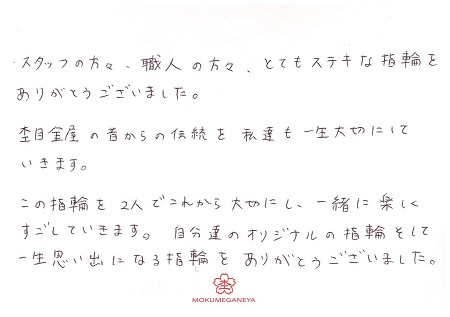 スタッフの方々、職人の方々、とてもステキな指輪を
ありがとうございました。
杢目金屋の昔からの伝統を私達も一生大切にして
いきます。
この指輪を2人でこれから大切にし、一緒に楽しく
すごしていきます。自分達のオリジナルの指輪そして
一生思い出になる指輪をありがとうございました。
杢
MOKUMEGANEYA